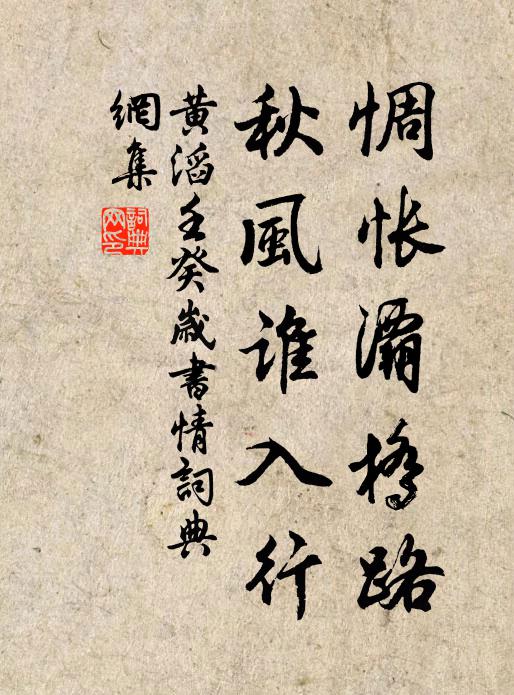 惆悵灞橋路
秋風誰入行
黃滔壬癸歲書情詞典
網集
詞典
网印